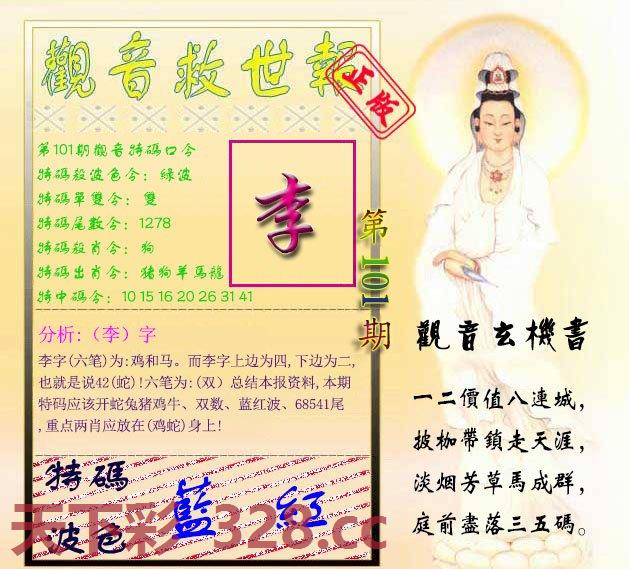 觀音救世報
正版
第101期觀音特碼口令
特碼殺波色令：綠波
特碼單雙令：雙
特碼尾數令：1278
特碼殺肖令：狗
特碼出肖令：猪狗羊馬龍
特中碼令：10 15 16 20 26 31 41
李
第101期
分析:（李）字
李字(六笔)为:鸡和马。而李字上边为四,下边为二,
也就是说42(蛇)!六笔为:(双）总结本报资料,本期
特码应该开蛇兔猪鸡牛、双数、蓝红波、68541尾
,重点两肖应放在(鸡蛇)身上!
特碼
波色
藍 紅
觀音玄機書
一二價值八連城，
披枷帶鎖走天涯，
淡烟芳草馬成群，
庭前盡落三五碼。
天下彩1328.cc